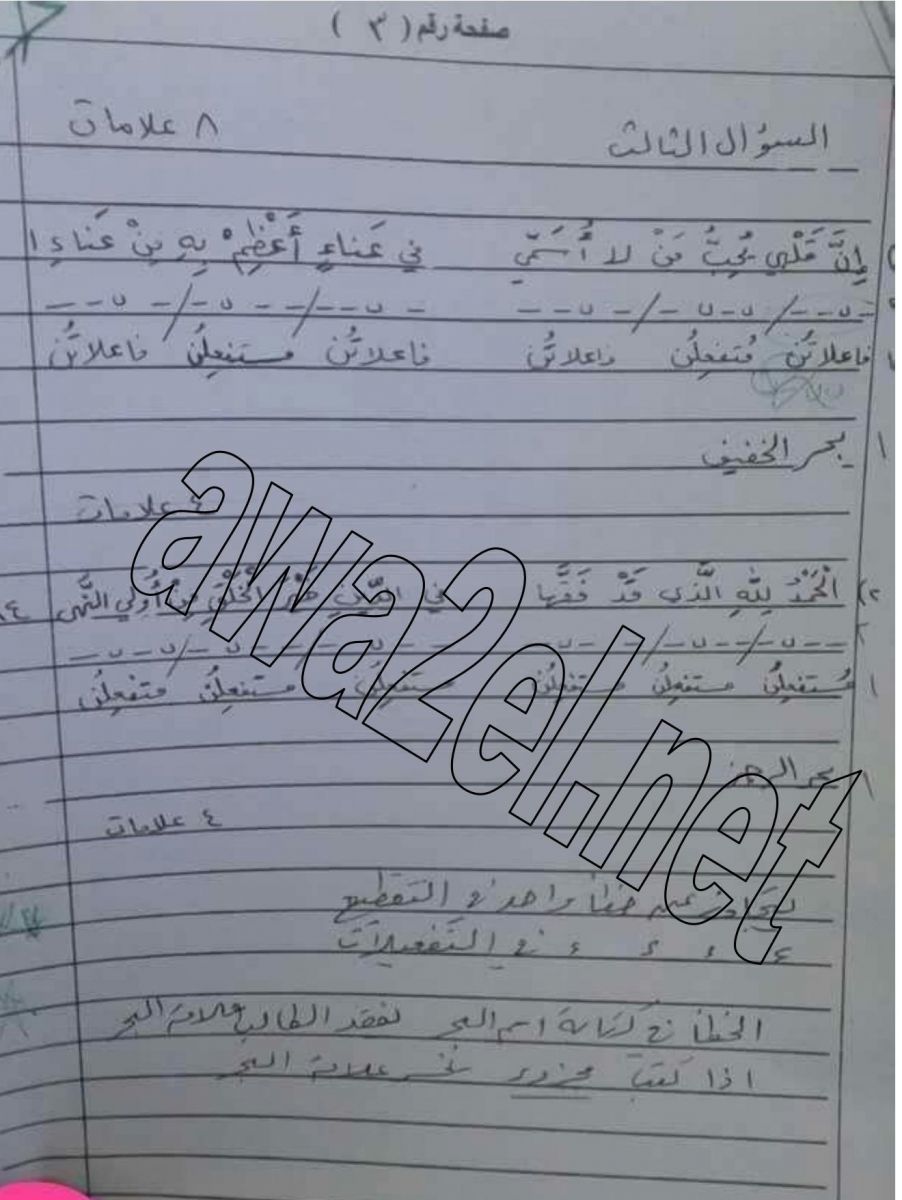 صفحة رقم ( ٣ )
السؤال الثالث ٨ علامات
إِنَّ قَلْبي يُحِبُّ مَنْ لا أُسَمّي في عَناءٍ أَعْظِمْ بِهِ مِنْ عَناءِ
- ں - - / ں - ں - / - ں - - - ں - - / - - ں - / - ں - -
فاعلاتُن مُتَفعِلُن فاعلاتُن فاعلاتُن مستفعِلُن فاعلاتُن
١ بحر الخفيف
٤ علامات
٢) الْحَمْدُ لِلهِ الَّذي قَدْ فَقَّها في الدّينِ خَيْرَ الْخَلْقِ مِنْ أُولي النُّهى
٢ - - ں - / - - ں - / - - ں - - - ں - / - - ں - / ں - ں -
١ مُستفعِلُن مستفعِلُن مستفعِلُن مستفعِلُن مستفعِلُن متفعِلُن
١ بحر الرجز
٤ علامات
عن خطأ واحد في التقطيع
في التفعيلات
الخطأ في كتابة اسم البحر يفقد الطالب علامة البحر
اذا كتب مجزوء يخسر علامة البحر
awa2el.net